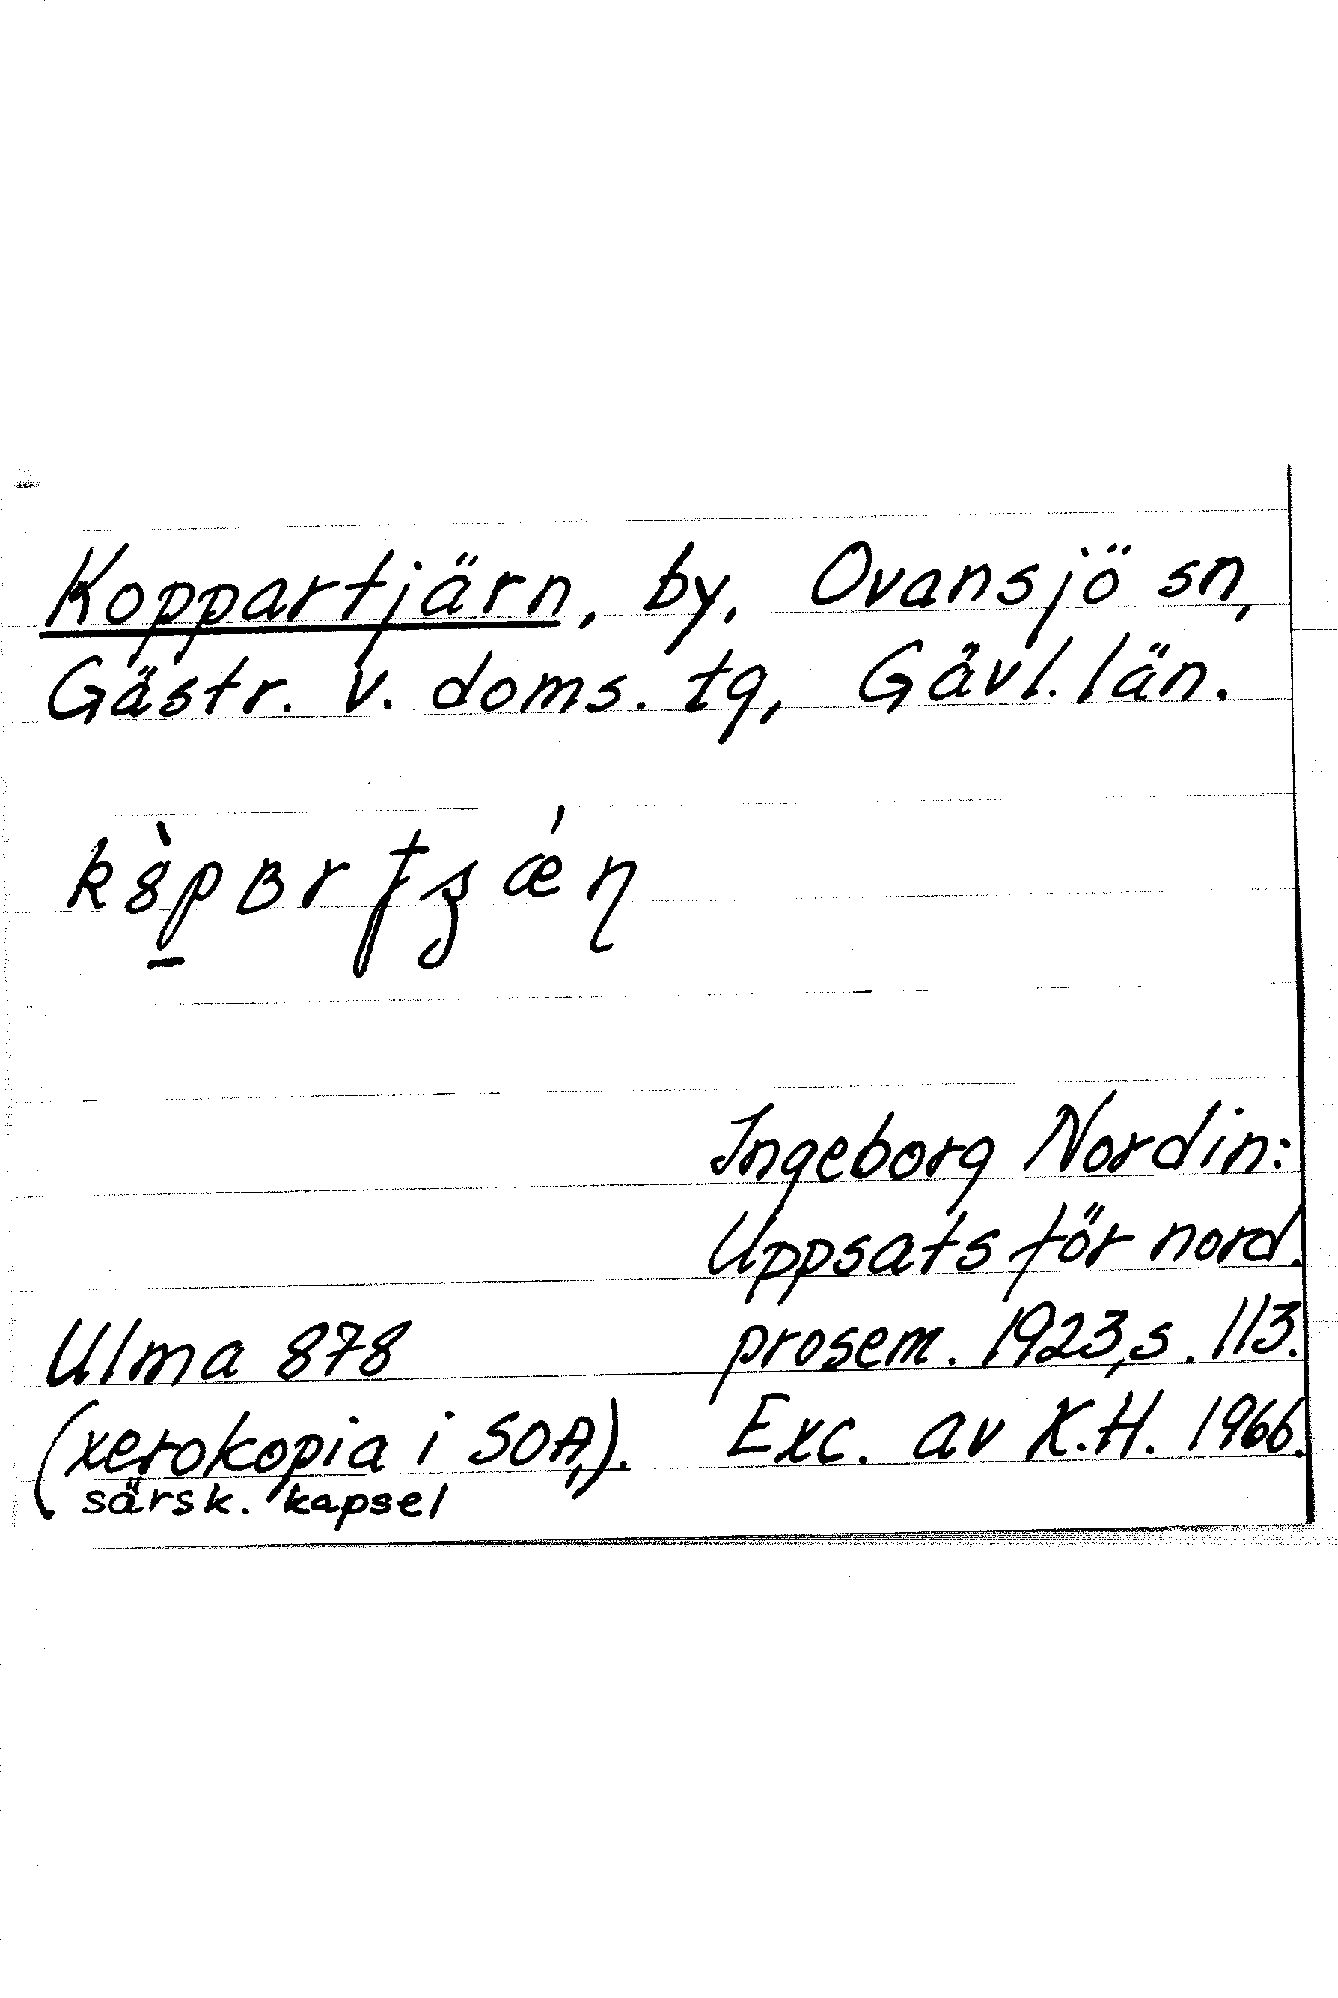 Koppartjärn, by, Ovansjö sn,
Gästr. v. doms. tg, Gävl. län.
Ingeborg Nordin:
Uppsats för nord.
Ulma 878 prosem. 1923, s. 113.
(xerokopia i SOA,). Exc. av K.H. 1966.
särsk. kapsel